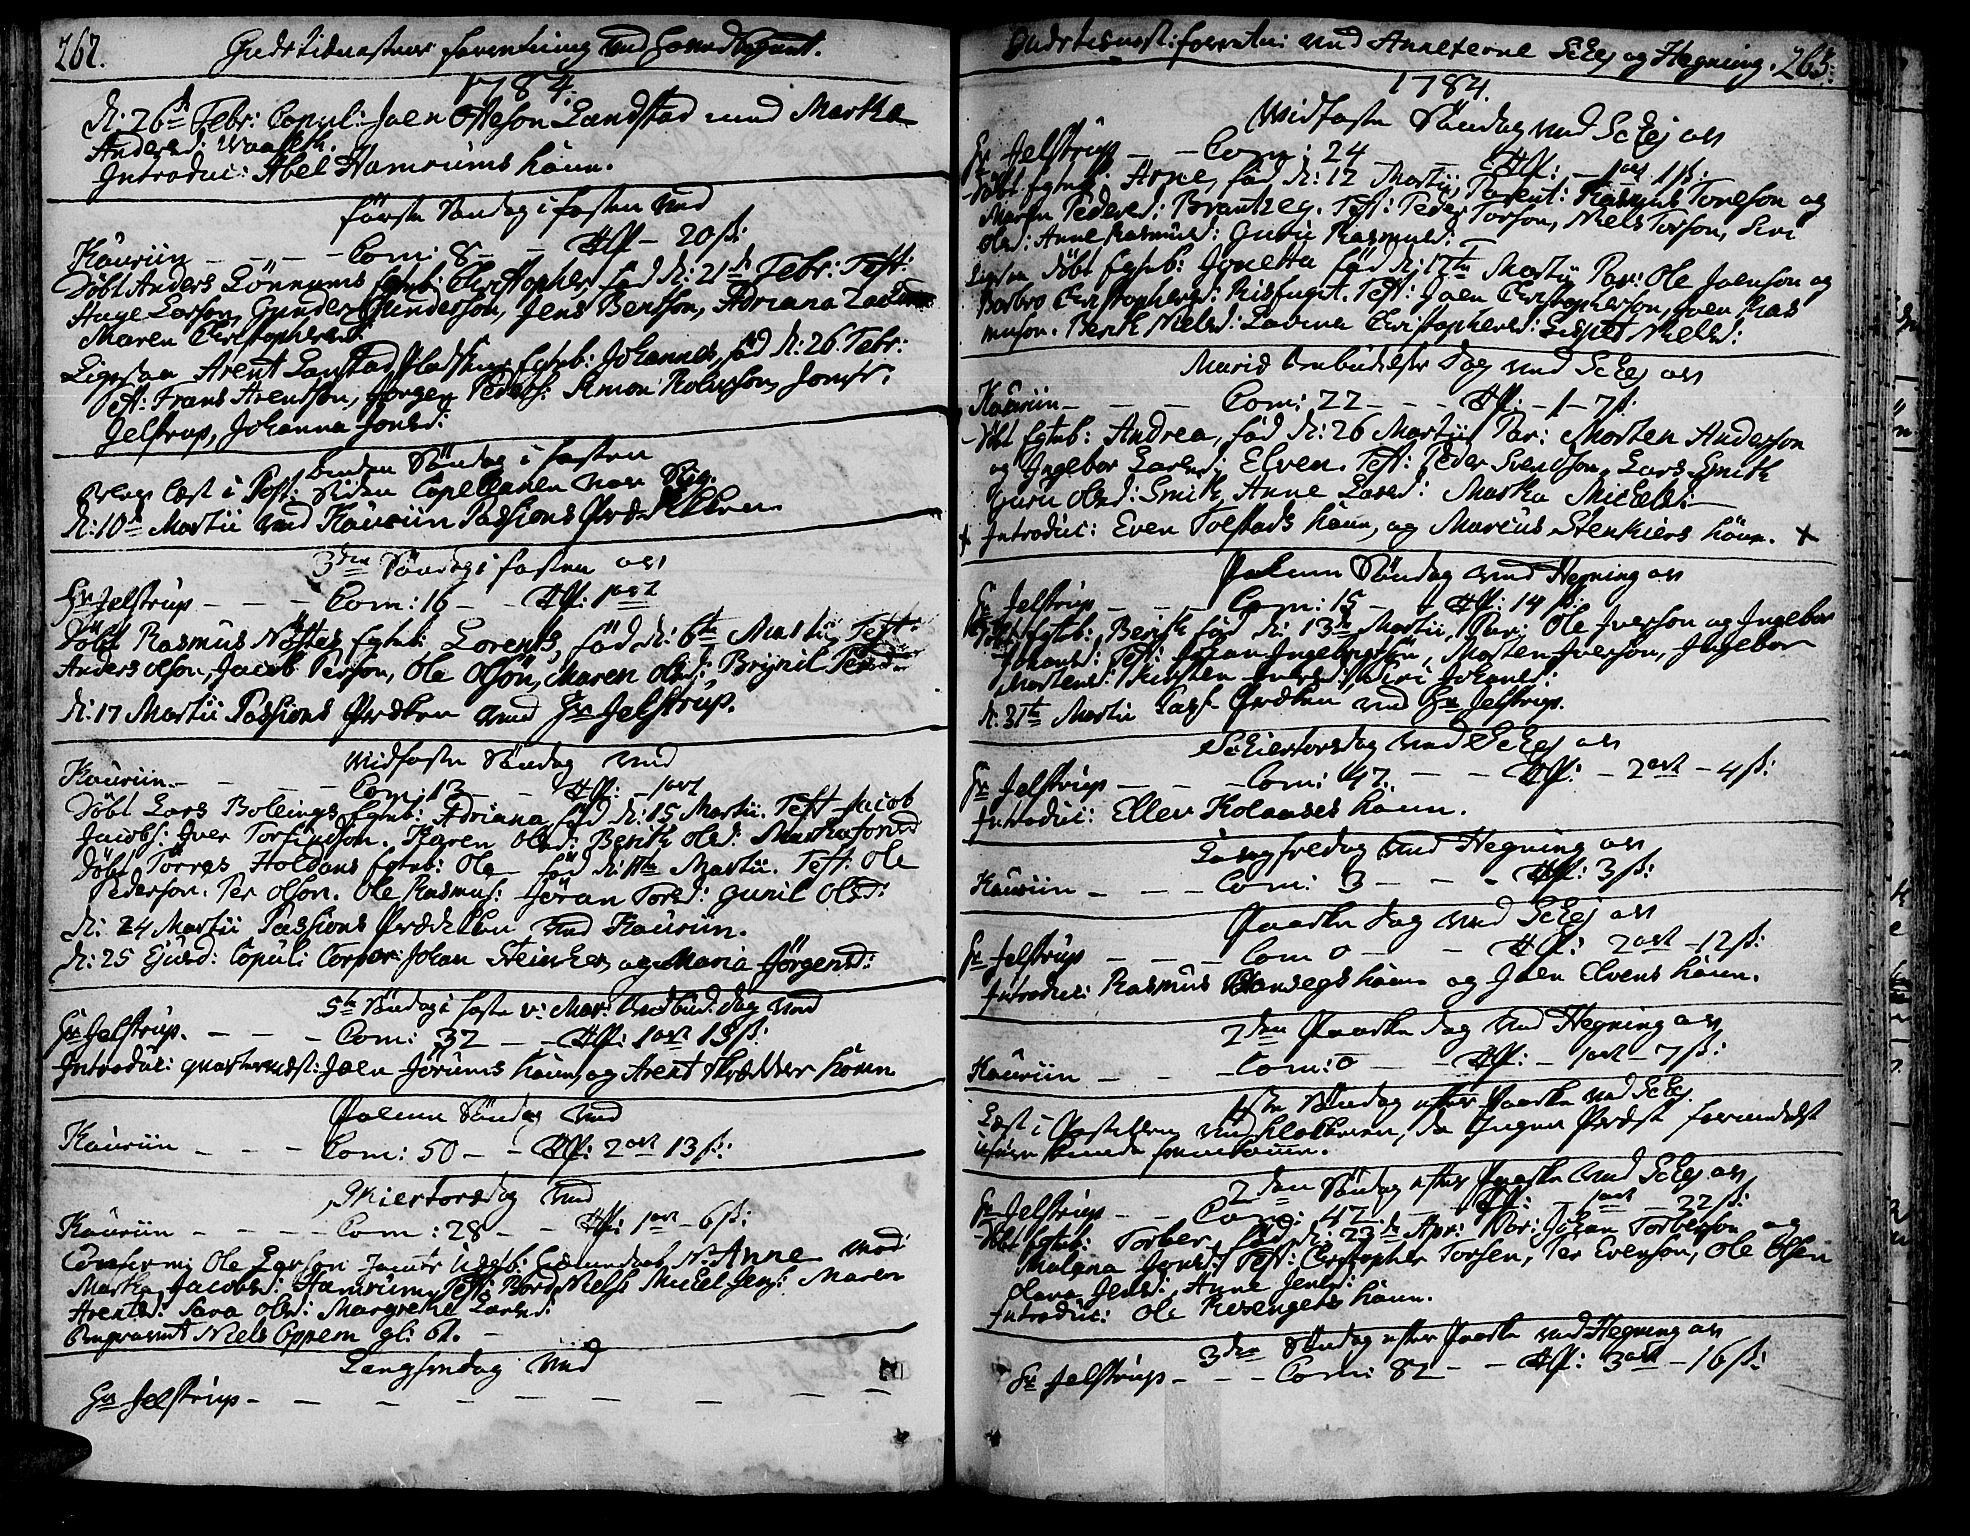 262.
Gudstienestens forretning ved hovedSognet.
1784.
d: 26de Febr: Copul: Joen Otteson Landstad med Martha
Andersd:
Introduc: Abel Hamrums kone.
første Søndag i fasten ved
Kaurin - - - Com: 8 - - Off - 20 ß:
Døbt Anders Lønnums Egtb: Christopher, fød d: 21de Febr: Test:
Auge Larson, Gunder Gunderson, Jens Bentson, Adriana
Maren Christophersd:
Ligesaa Arent Lanstad Egtb: Johannes, fød d: 26. Febr:
T: Frans Arentson, Jørgen Peders: Simon Jomfr:
Jelstrup, Johanna Jonsd:
Anden Søndag i fasten
læst i Post: Siden Capellanen var Syg.
d: 10de Martii ved Kaurin Passions Prædikken
3den Søndag i fasten
Hr Jelstrup - - - Com: 16 - - Off: 1 ort
Døbt Rasmus Egtb: Lorents, fød d: 6te Martii, Test:
Anders Olson, Jacob Person, Ole Olson, Maren Olsd: Brynil
d: 17 Martii Passions Præken ved Hr Jelstrup.
Midfaste Søndag ved
Kaurin - - - Com: 13 - - Off: - 1 ort
Døbt Lars Bollings Egtb: Adriana, fød d: 15 Martii. Test Jacob
Jacobs: Iver Torfindson. Karen Olsd: Berith Olsd: Martha Jonsd
Døbt Tørres Holdans Egtb: Ole fød d: 11te Martii. Test: Ole
Pederson. Per Olson. Ole Rasmus: Gøran Torsd: Gunil Olsd:
d: 24 Martii Passions Prædikken ved Kaurin.
d: 25 Ejusd: Copul: Corpor: Johan Steinkier og Maria Jørgensd:
5te Søndag i faste v: Mar: Bebud: dag ved
Hr Jelstrup. - - - Com: 32 - - Off: 1 ort 13 ß:
Introduc: Joen Jørums kone, og Arent Skrædder kone
Palme Søndag ved
Kaurin - - - Com: 50 - - Off: 2 ort 13 ß:
Skiertorsdag ved
Kaurin - - - Com: 28 - - Off: 1 ort - 6 ß:
Ole Larson N: Anne
Martha Jacobsd: Hamrum, Test: Bord Niels: Michel Jens: Maren
Arentsd: Sara Olsd: Margrethe Larsd:
Niels Oppem gl: 61.
Langfredag ved
Hr Jelstrup - - - - - - -
Gudstienest: forretn: ved Annexerne Schej og Hegning. 263.
1784.
Midfaste Søndag ved Schej
Hr Jelstrup - - Com: 24 - - Off: - 1 ort 1 ß:
Døbt Egtb: Arne, fød d: 12 Martii, Parent: Rasmus Toreson og
Marit Pedersd: Brantzeg. Test: Peder Torson, Niels Torson, Siri
Olsd: Anne Rasmusd: Guru Rasmusd:
Ligesaa Døbt Egtb: Jonetta fød d: 17te Martii Par: Ole Joenson og
Barbro Christophersd: Risfuget. Test: Joen Christopherson, Joen Ras
muson. Berit Nielsd: Lavina Christophersd: Lisbet Nielsd:
Mariæ Bebudelses Dag ved Schej
Kaurin - - - Com: 22 - - - Off: - 1 - 7 ß:
Døbt Egtb: Andrea, fød d: 26 Martii, Par: Morten Anderson
og Ingebor Larsd: Elven. Test: Peder Svendson, Lars Smith
Guru Olsd: Smith, Anne Larsd: Martha Michelsd:
Introduc: Even Tolstads kone, og Marcus Stenkiers kone.
Palme Søndag ved Hegning
Hr Jelstrup - - - Com: 15 - - Off: 14 ß:
Døbt Egtb: Berith fød d: 13de Martii, Par: Ole Iverson og Ingebor
Johansd: Test: Johan Ingebrigtson, Morten Iverson, Ingebor
Mortensd: Kirsten Siri Johansd:
d: 31te Martii Præken ved Hr Jelstrup.
Skiertorsdag ved Schej
Hr Jelstrup - - - Com: 47. - - - Off: - 2 ort - 4 ß:
Introduc: Eller Kolaases kone.
Langfredag ved Hegning
Kaurin - - - Com: 3 - - - Off: 3 ß:
Paaske dag ved Schej
Hr Jelstrup - - - Com 0 - - Off: 2 ort - 12 ß:
Introduc: Rasmus kone og Joen Elvens kone.
2den Paaske dag ved Hegning
Kaurin - - - Com: 0 - - Off: - 1 ort - 7 ß:
1ste Søndag efter Paaske ved Schej
Læst i Postillen ved Klokkeren, da Ingen Præst formedelst
2den Søndag efter Paaske ved Schej
Hr Jelstrup - - Com: 47. - - Off: - 1 ort - 22 ß:
Døbt Egtb: Torber, fød d: 23de Apr: Par: Johan Torberson og
Malena Jonsd: Test: Christopher Torsen, Per Evenson, Ole Olsen
Olava Jensd: Anne Jensd:
Introduc: Ole Resengets kone.
3den Søndag efter Paaske ved Hegning
Hr Jelstrup - - - Com: 82 - - Off: 3 ort - 16 ß: